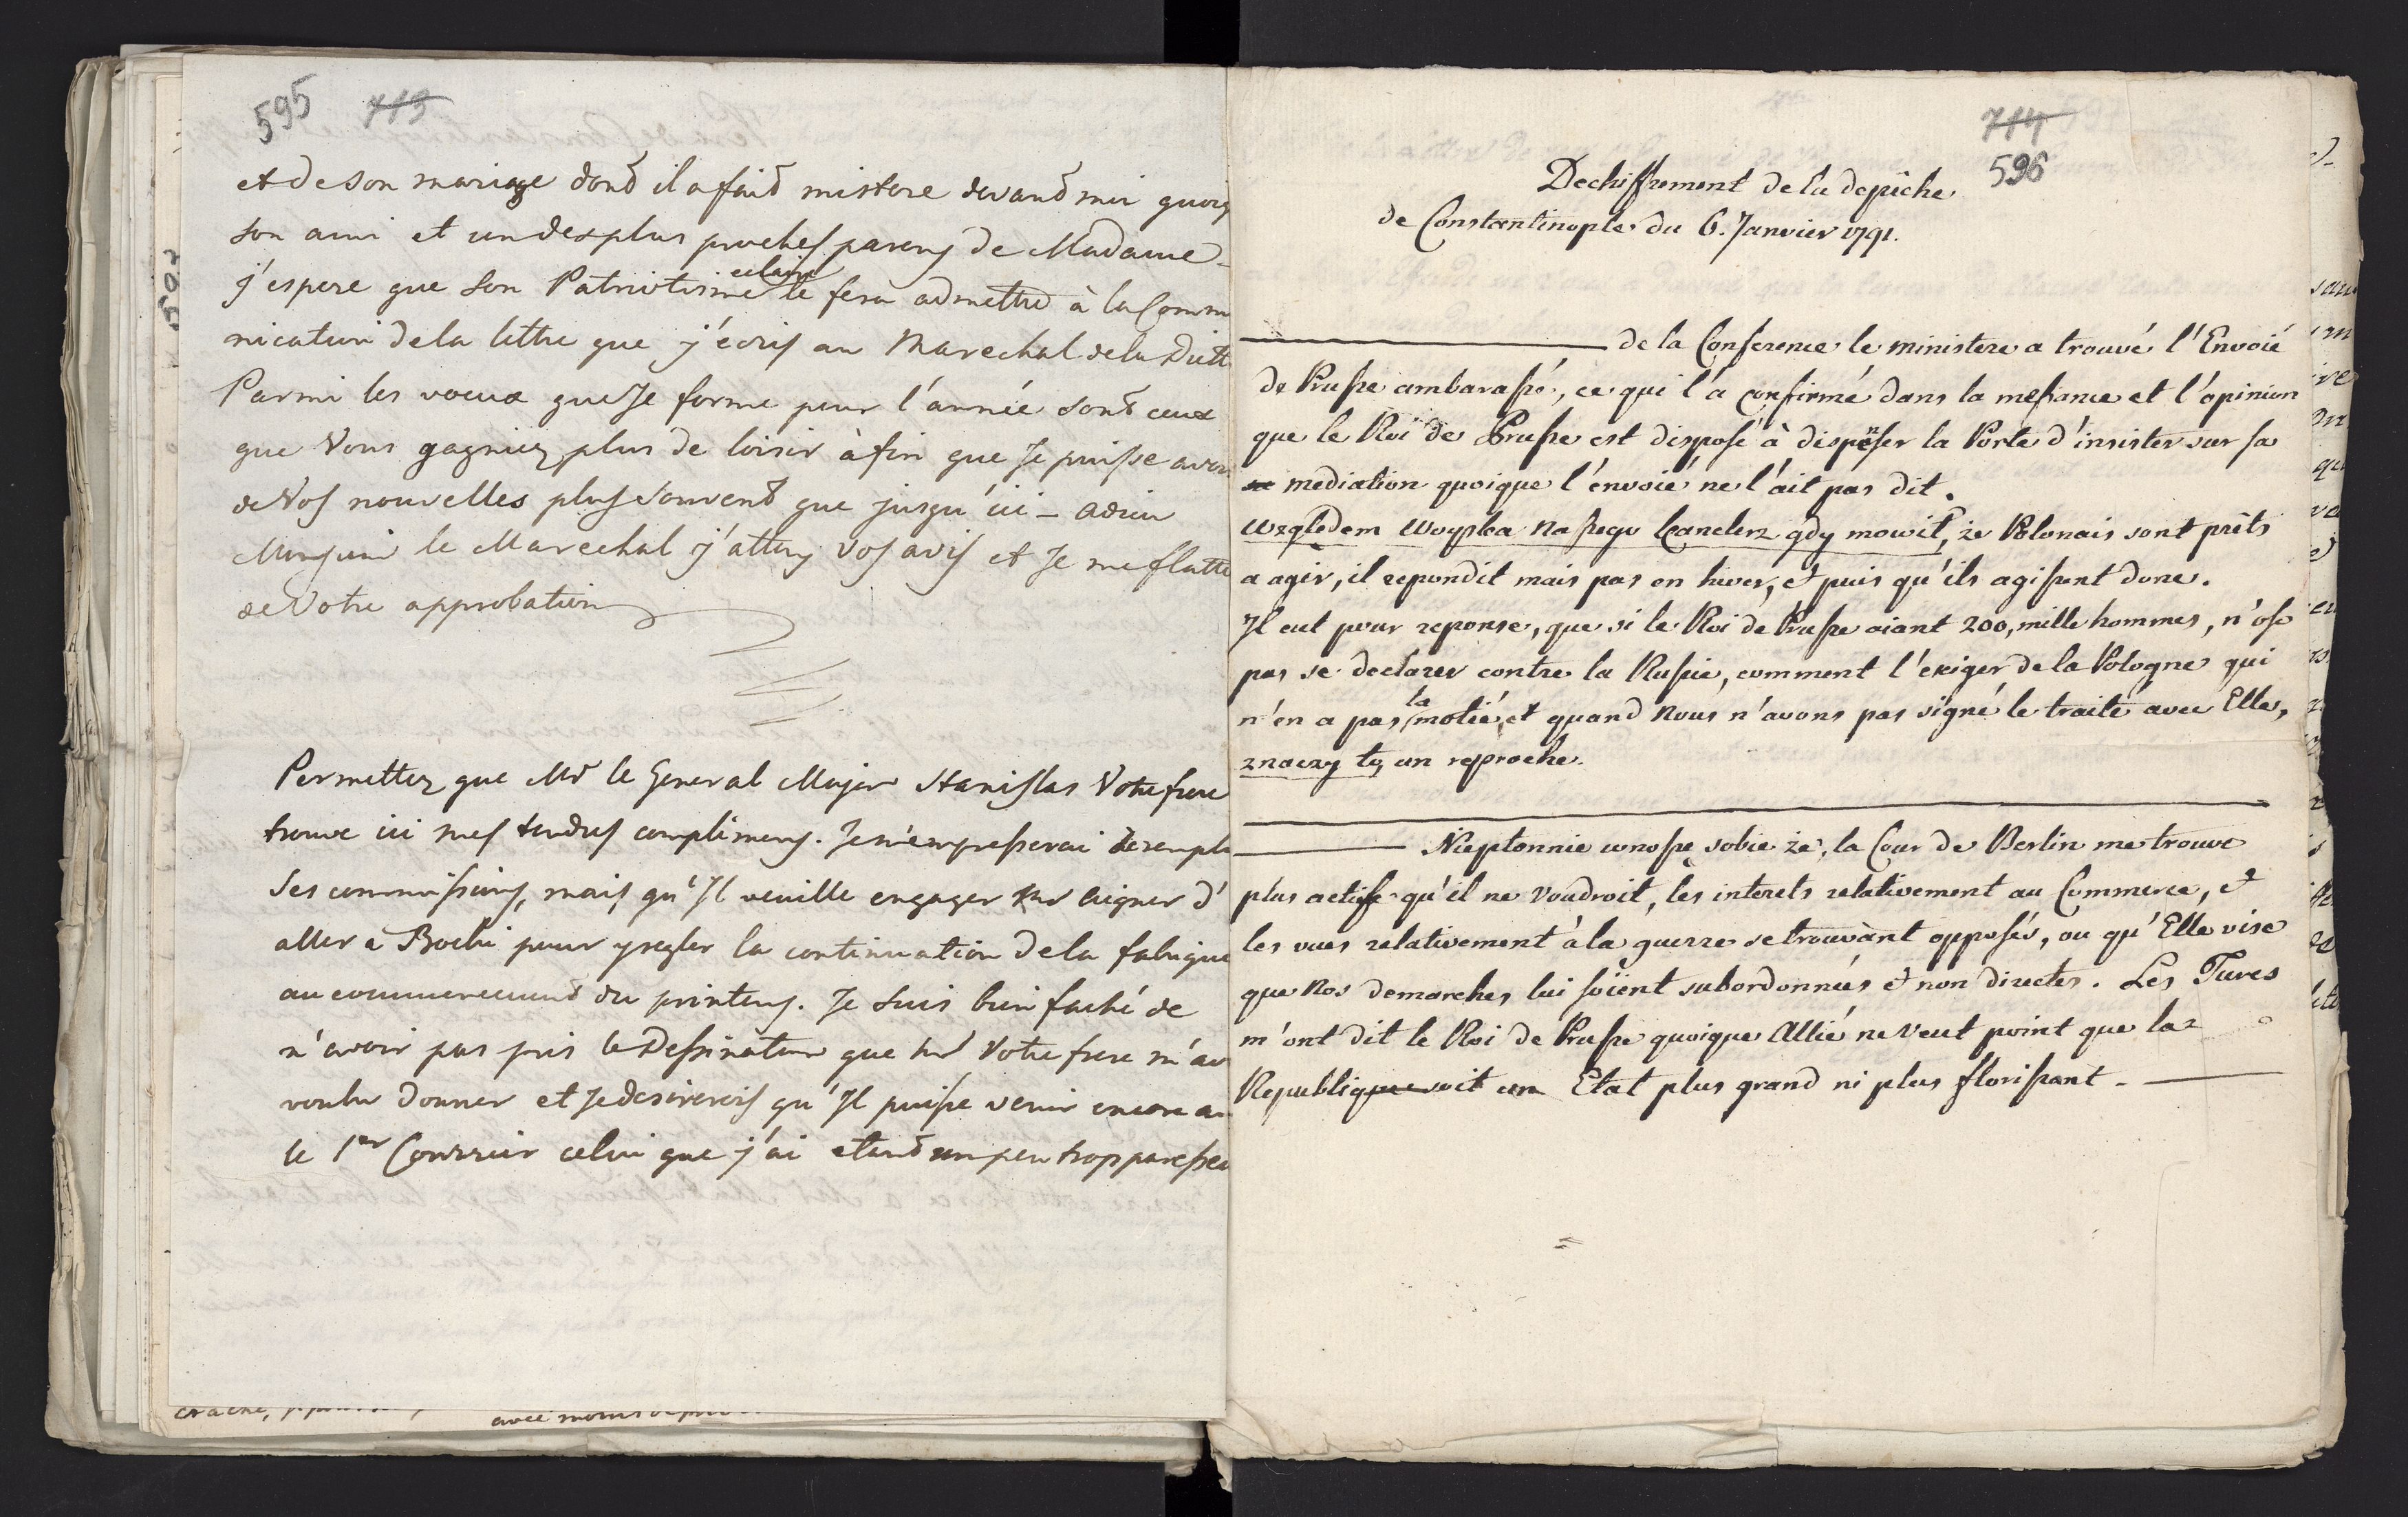 595 713
et de son mariage dont il a fait mistere devant moi quoiq
son ami et un des plus proches parens de Madame
eclairé
j'espere que son Patriotisme le fera admettre à la Comm
nication de la lettre que j'écris au Marechal de la Diett
Parmi les voeux que Je forme pour l'année sont ceux
que Vous gagniez plus de loisir àfin que Je puisse avoi
de Vos nouvelles plus souvent que jusqu'ici – adieu
le Marechal j'attens Vos avis et Je me flatte
de Votre approbation
Permettez que Mr le General Major Stanislas Votre frere
trouve ici mes tendres complimens. Je m'empresserai de rempli
ses commissions, mais qu'Il veuille engager d'
aller a pour y regler la continuation de la fabrique
au commencement du printems. Je suis bien faché de
n'avoir pas pris le Dessinateur que Mr Votre frere m'av
voulu donner et Je desirerois qu'Il puisse venir encore av
le 1er Courrier celui que j'ai etant un peu trop paresseu
crache,
avec moins de
714
596
Dechiffrement de la depêche
de Constantinople du 6. Janvier 1791.
de la Conference le ministere a trouvé l'Envoié
de Prusse ambarassé, ce qui l'a confirmé dans la mefiance et l'opinion
que le Roi de Prusse est disposé à dispenser la Porte d'insister sur sa
mediation quoique l'envoié ne l'ait pas dit.
względem Woyska Naszego Kanclerz gdy mowił, że Polonais sont prêts
a agir, il repondit mais pas en hiver, et puis qu'ils agissent donc.
Il eut pour reponse, que si le Roi de Prusse aiant 200, mille hommes, n'ose
pas se declarer contre la Russie, comment l'exiger de la Pologne qui
la
n'en a pas motié, et quand Nous n'avons pas signé le traité avec Elle,
znaczy to, un reproche.
Nieptonnie wnoszę sobie że, la Cour de Berlin me trouve
plus actif qu'il ne voudroit, les interets relativement au Commerce, et
les vues relativement à la guerre se trouvant opposés, ou qu'Elle vise
que Nos demarches lui soïent subordonnées et non directes. Les Turcs
m'ont dit le Roi de Prusse quoique Allié ne veut point que la
Republique soit un Etat plus grand ni plus florissant.